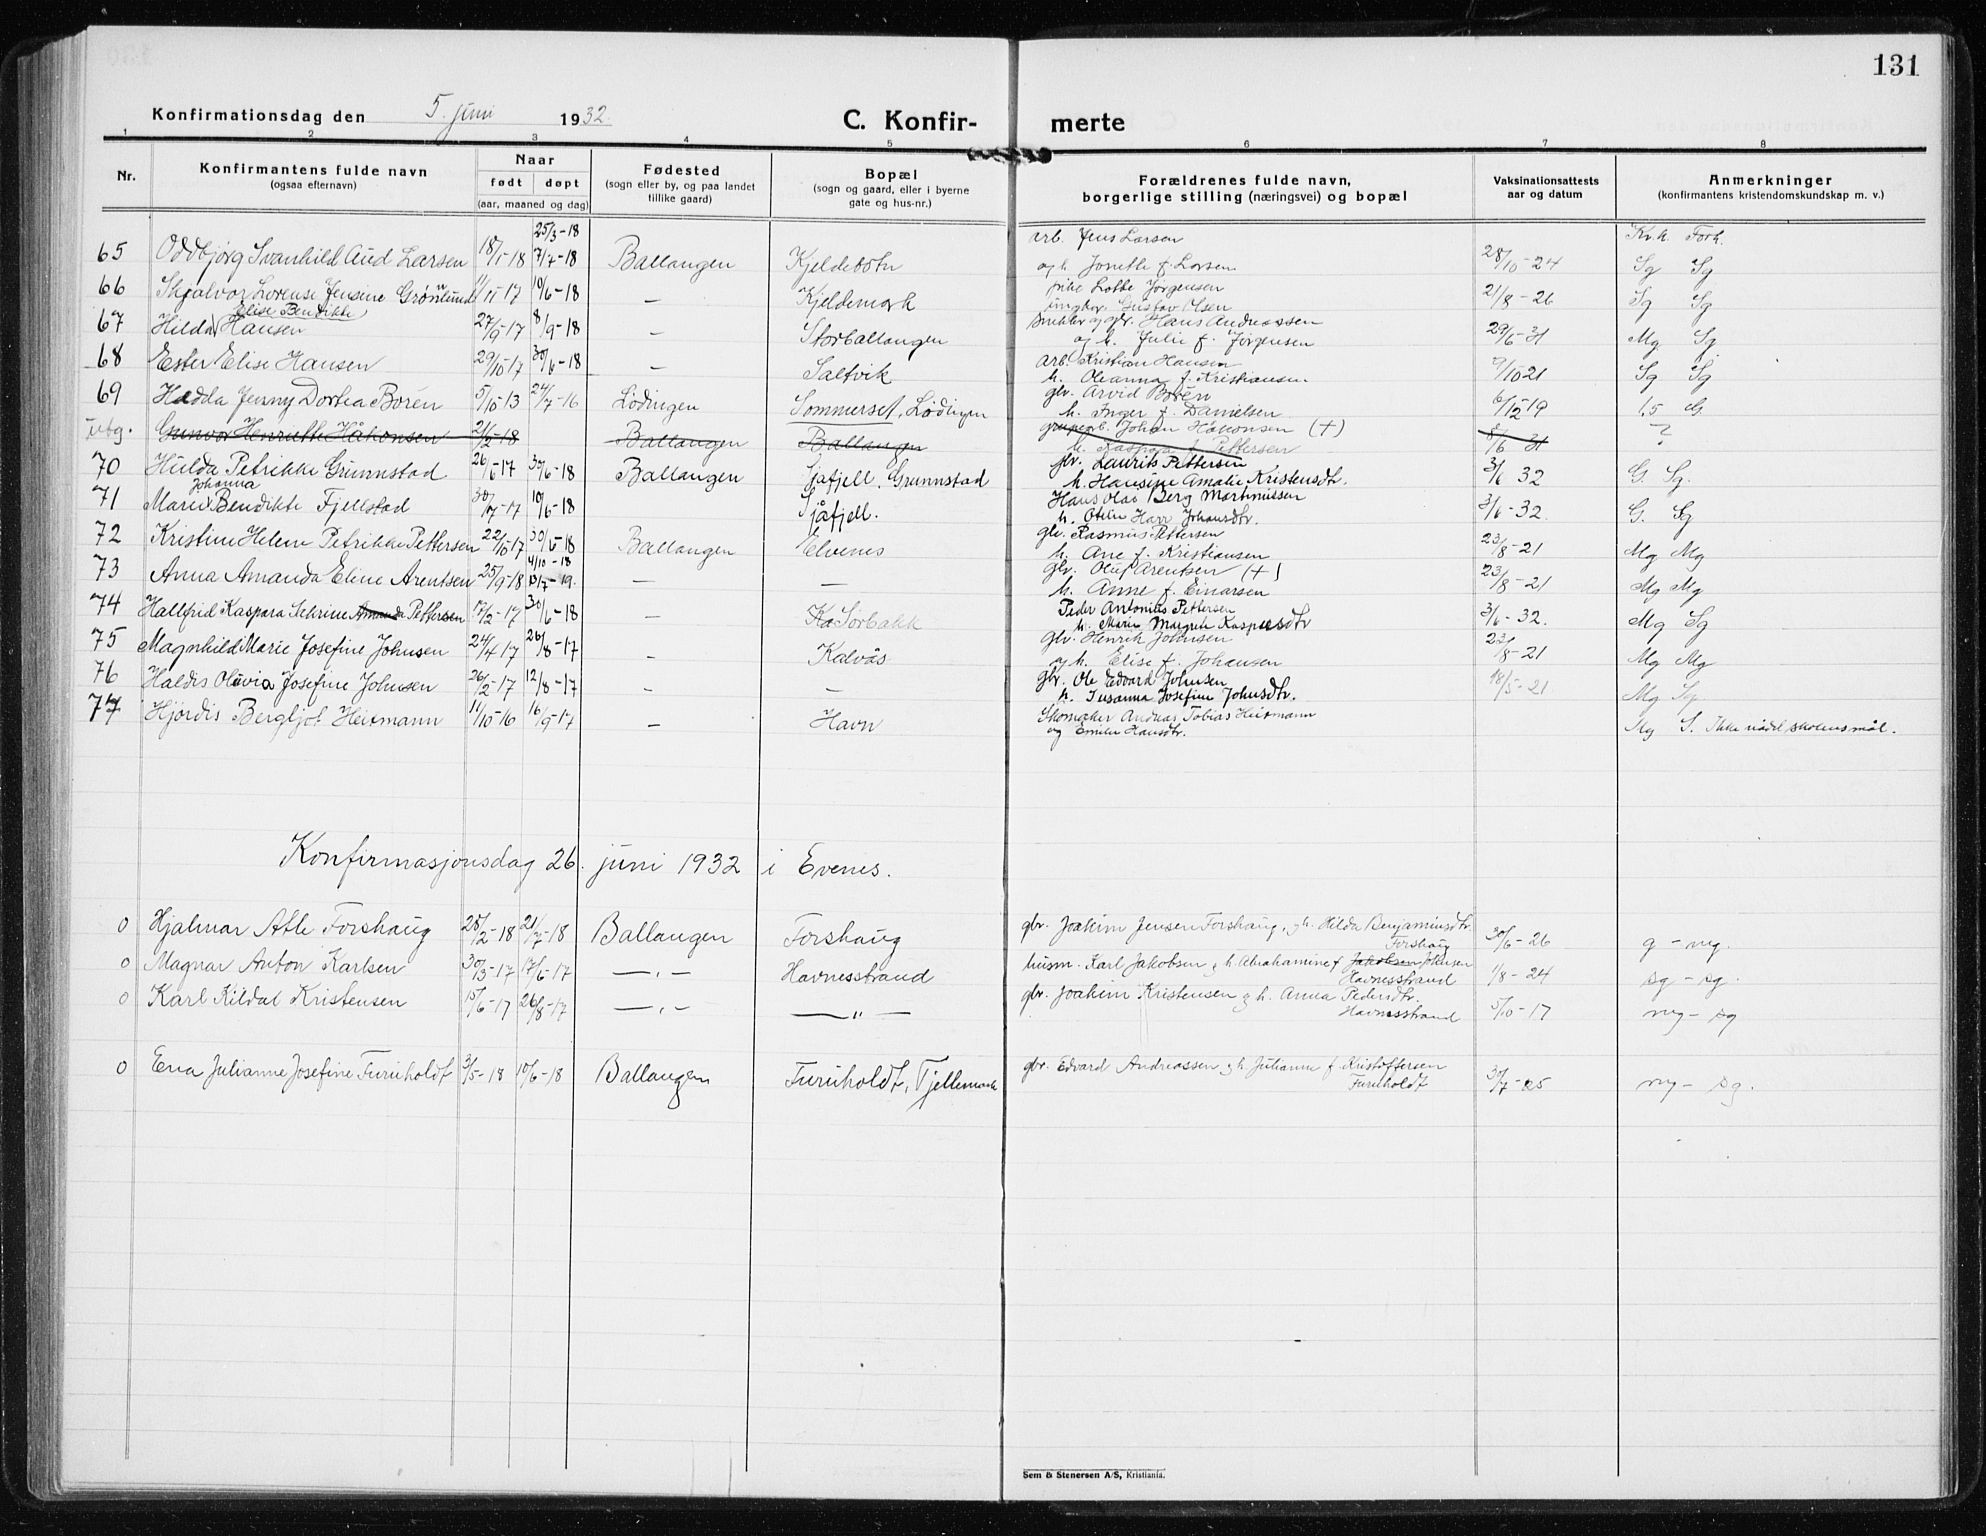 131
Konfirmationsdag den 5. juni 1932. C. Konfir- merte
1 2 3 4 5 6 7 8
Nr. Konfirmantens fulde navn (ogsaa efternavn) Naar født døpt (aar, maaned og dag) Fødested (sogn eller by, og paa landet tillike gaard) Bopæl (sogn og gaard, eller i byerne gate og hus-nr.) Forældrenes fulde navn, borgerlige stilling (næringsvei) og bopæl Vaksinationsattests aar og datum Anmerkninger (konfirmantens kristendomskundskap m. v.)
25/3-18 arb. Jens Larsen Kr.k. Forh.
65 Oddbjørg Svanhild Aud Larsen 18/1-18 7/7-18 Ballangen Kjeldebotn og h. Jonette f. Larsen 28/10-24 Sg Sg
66 Lorense Jensine Grønlund 11/11-17 10/6-18 — Kjeldemark pike Lotte Jørgensen ungkar Gustav Olsen 21/8-26 Sg Sg
Elise Bendikte
67 Hilda Hansen 27/9-17 8/9-18 — Storballangen Hans Andreassen og h. Julie f. Jørgensen 29/6-31 Mg Sg
68 Ester Elise Hansen 29/10-17 30/6-18 — Saltvik arb. Kristian Hansen h. Oleanna f. Kristiansen. 9/10 21 Sg Sg
69 Hedda Jenny Dortea Boren 5/10-13 24/7-16 Lødingen Sommerset, Lødingen gbr. Arvid Boren h. Inger f. Danielsen 6/12 19 1,5 G.
utg. Gunvor Henriette Håkonsen 2/5-18 Ballangen Ballangen grubearb. Johan Håkonsen (+) h. Kaspara f. Pettersen 8/6 31 ?
70 Hulda Petrikke Grunnstad 26/1-17 30/6-18 Ballangen Sjåfjell, Grunnstad gbr. Laurits Pettersen h. Hansine Amalie Kristensdtr. 3/6 32 G. Sg.
Johanna
71 Marie Bendikte Fjellstad 30/7-17 10/6-18 Sjåfjell. Hans Olai Berg Martinussen h. Otelie Harr Johansdtr. 3/6-32. G. Sg
72 Kristine Helene Petrikke Pettersen 22/10-17 30/6-18 Ballangen Elvenes gbr. Rasmus Pettersen h. Ane f. Kristiansen 23/8-21 Mg Mg
4/10-18
73 Anna Amanda Eline Arentsen 25/9-18 13/7-19. — — gbr. Oluf Arentsen (+) h. Anne f. Einarsen 23/8-21 Mg Mg
74 Hallfrid Kaspara Sehrine Amanda Pettersen 17/2-17 30/6-18 — Sørbakk Peder Antonius Pettersen h. Marie Margrete Kaspersdtr 3/6-32. Mg Sg
75 Magnhild Marie Josefine Johnsen 24/4-17 26/8-17 — Kalvås gbr. Henrik Johnsen og h. Elise f. Johansen 23/8-21 Mg Mg
76 Haldis Olivia Josefine Johnsen 26/2-17 12/8-17 — — gbr. Ole Edvard Johnsen h. Susanna Josefine Johnsdtr. 18/5-21 Mg Sg
77 Hjørdis Bergljot Heitmann 11/10-16 16/9-17 — Havn Skomaker Andreas Tobias Heitmann og Emilie Hansdtr. Mg S. Ikke nådd skolens mål.
Konfirmasjonsdag 26. juni 1932 i Evenes.
0 Hjalmar Atle Forshaug 25/2-18 21/7-18 Ballangen Forshaug gbr. Joakim Jensen Forshaug, og h. Hilda Benjaminsdtr. Forshaug 30/6-26 g - mg.
0 Magnar Anton Karlsen 30/3-17 17/6-17 —„— Havnesstrand husm. Karl Jakobsen og h. Abrahamine f Jakobsen Johnsen Havnesstrand 1/8-24 sg - sg.
0 Karl Kildal Kristensen 15/6-17 26/8-17 —„— —„— gbr. Joakim Kristensen og h. Anna Pedersdtr. Havnesstrand 5/10-17 mg - sg
0 Ena Julianne Josefine Furuholdt 3/5-18 10/6-18 Ballangen Furuholdt, Tjellemark gbr. Edvard Andreassen og h. Julianne f Kristoffersen Furuholdt 30/7-25 mg - sg.
Sem & Stenersen A/S, Kristiania.